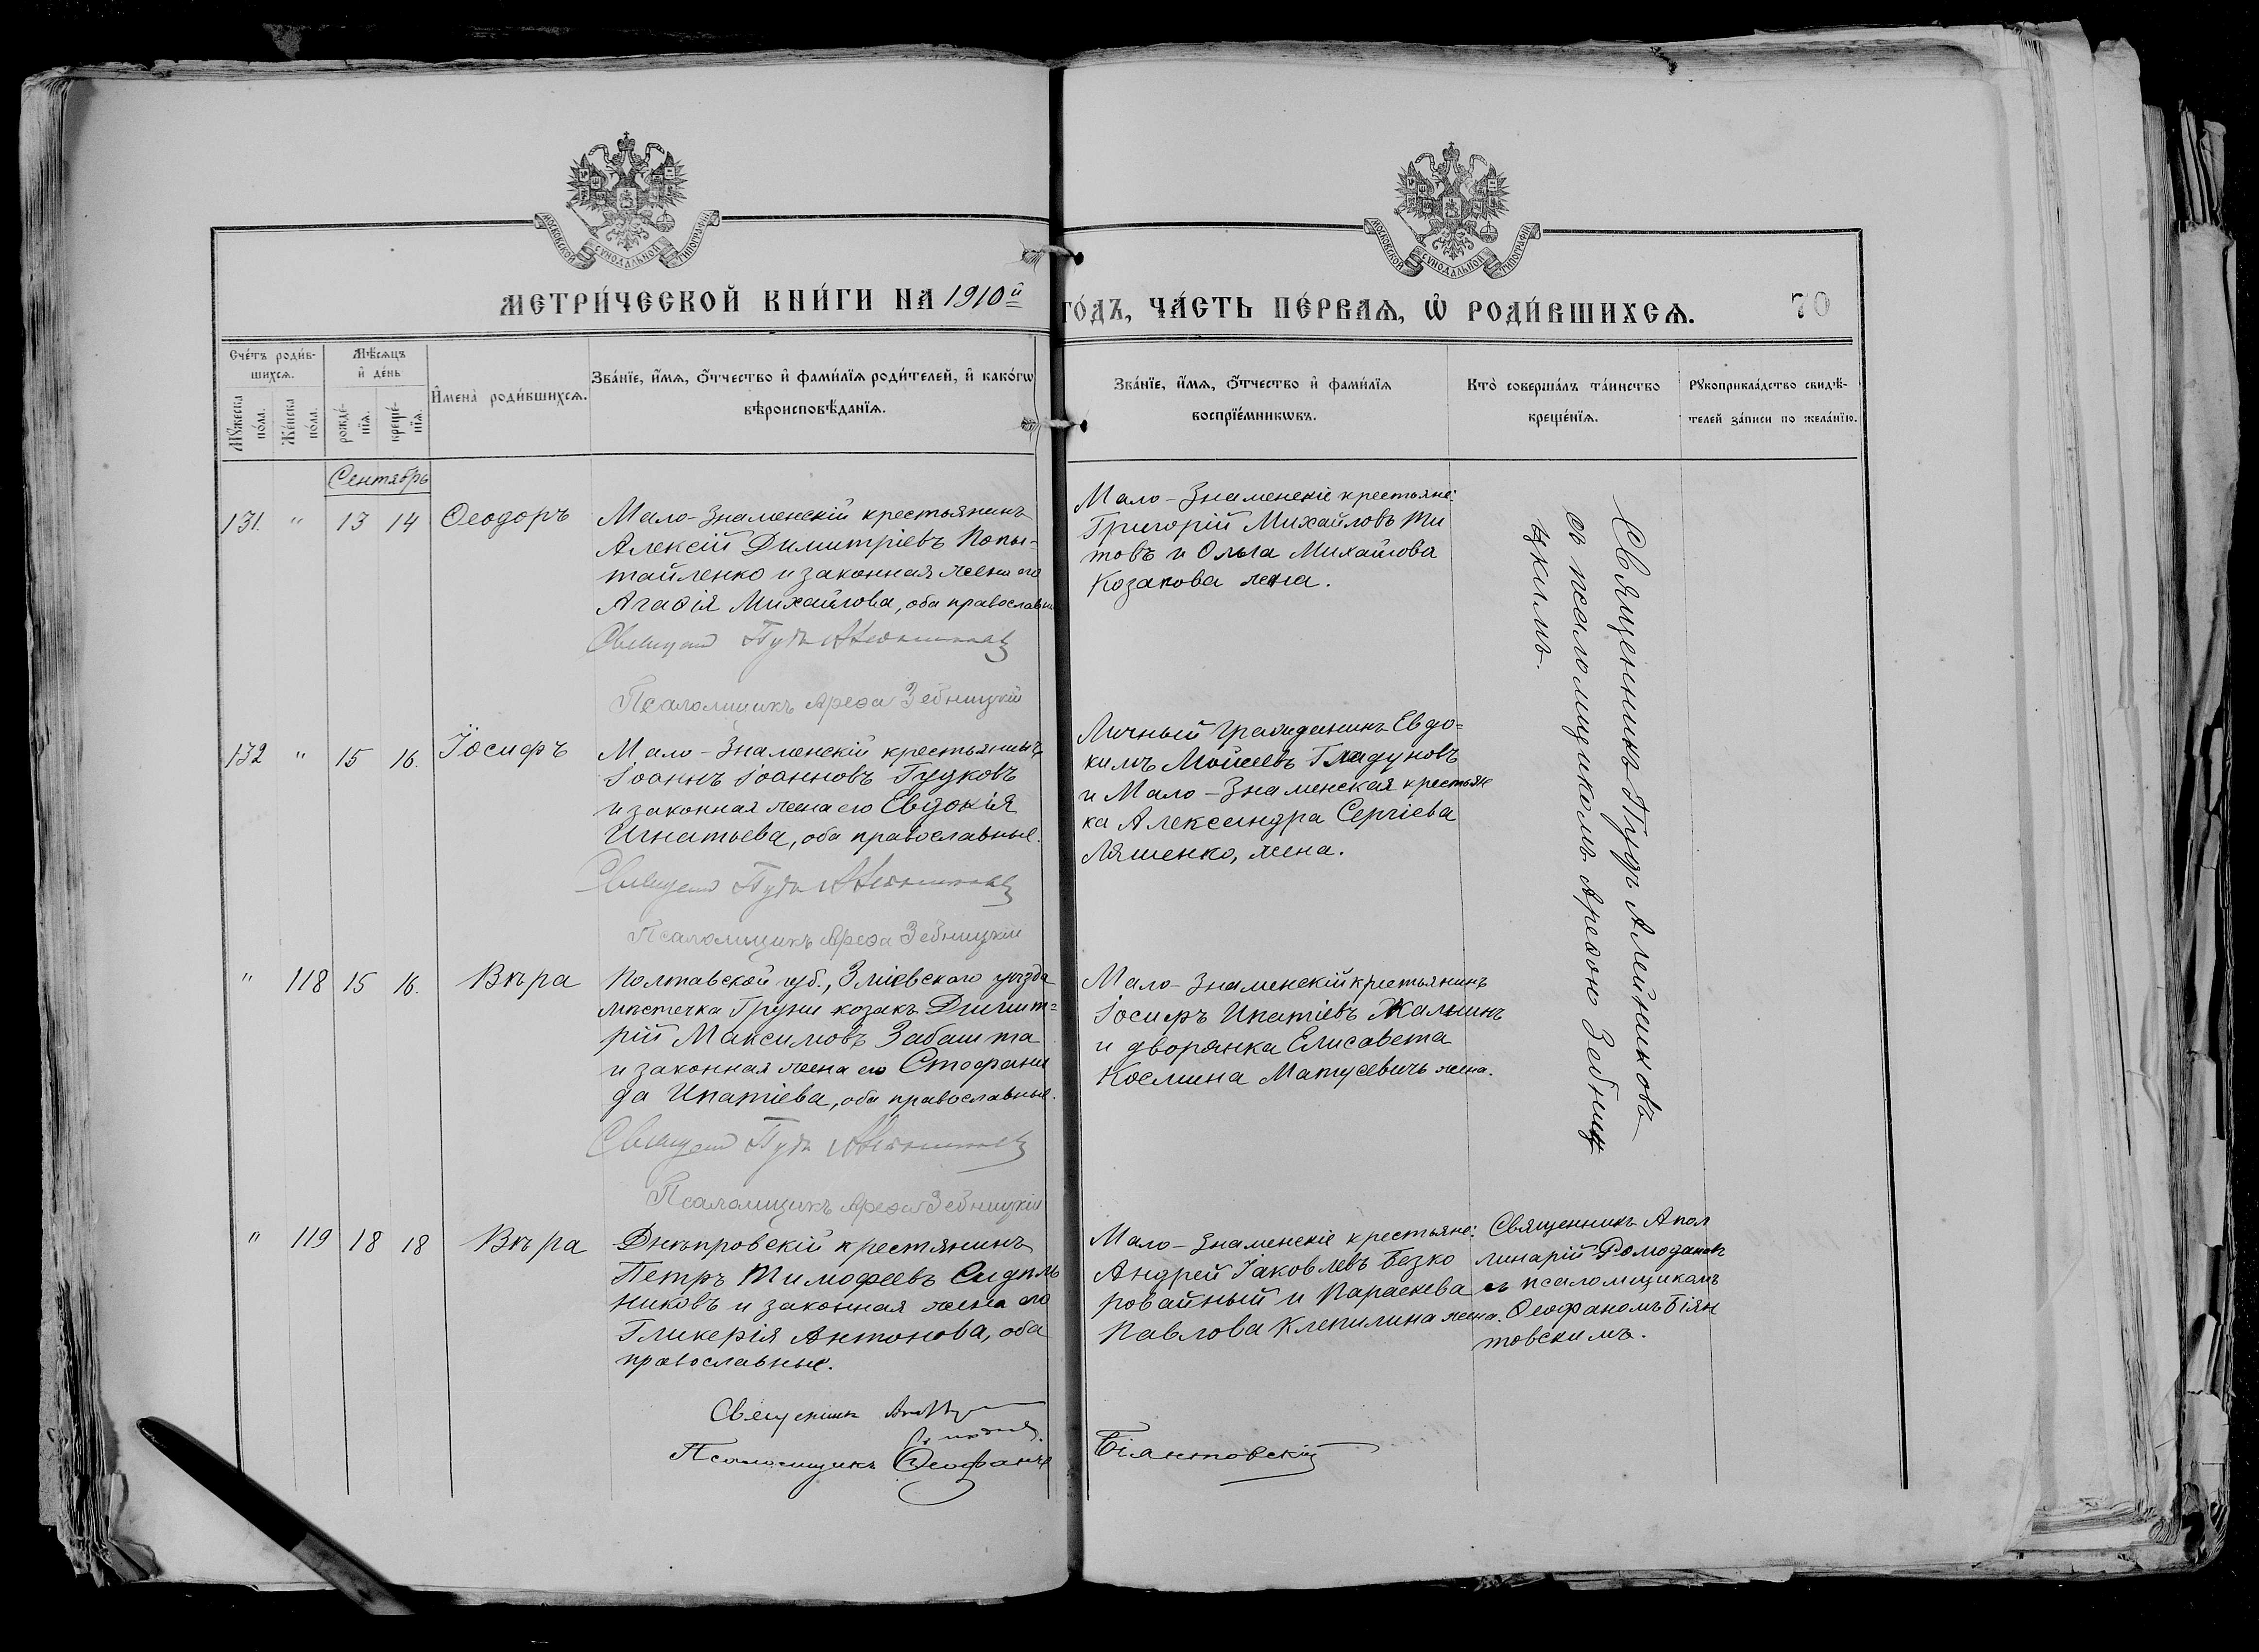 МОСКОВСКОЙ СѴНОДАЛЬНОЙ ТИПОГРАФІИ
МОСКОВСКОЙ СѴНОДАЛЬНОЙ ТИПОГРАФІИ
МЕТРИ́ЧЕСКОЙ КНИ́ГИ НА 1910й ГО́ДЪ, ЧА́СТЬ ПЕ́РВАѦ, Ѡ҆ РОДИ́ВШИХСѦ.
70
Сче́тъ роди́в-
шихсѧ.
Мѣ́сѧцъ
и҆ де́нь
Мꙋ́жеска
по́ла.
Же́нска
по́ла.
рожде́-
нїѧ.
креще́-
нїѧ.
И҆мена̀ роди́вшихсѧ.
Зва́нїе, и҆́мѧ, ѻ҆́тчество и҆ фами́лїѧ роди́телей, и҆ како́гѡ
вѣроисповѣ́данїѧ.
Зва́нїе, и҆́мѧ, ѻ҆́тчество и҆ фами́лїѧ
воспрїе́мникѡвъ.
Кто̀ соверша́лъ та́инство
креще́нїѧ.
Рꙋкоприкла́дство свидѣ́-
телей за́писи по жела́нїю.
Сентябрь
131. " 13 14 Ѳеодоръ
Мало-Знаменскій крестьянинъ
Алексій Димитріевъ Попы-
тайленко и законная жена его
Агаѳія Михайлова, оба православн
Священ Пудъ Алейниковъ
Псаломщикъ Ареѳа Зебницкій
Мало-Знаменскіе крестьяне:
Григорій Михайловъ Ти
товъ и Ольга Михайлова
Козакова жена.
Священникъ Пудъ Алейниковъ
съ псаломщикомъ Ареѳою Зебниц
цкимъ.
132 " 15 16. Іосифъ
Мало-Знаменскій крестьянинъ
Іоаннъ Іоанновъ Гудковъ
и законная жена его Евдокія
Игнатьева, оба православные.
Священ Пудъ Алейниковъ
Псаломщикъ Ареѳа Зебницкій
Личный гражданинъ Евдо-
кимъ Мойсеевъ Гладуновъ
и Мало-Знаменская крестьян
ка Александра Сергіева
Ляшенко, жена.
" 118 15 16. Вѣра
Полтавской губ., Зміевского уѣзда
мѣстечка Груни козакъ Димит-
рій Максимовъ Забашта
и законная жена его Стефани
да Ипатіева, оба православные.
Священ Пудъ Алейниковъ
Псаломщикъ Ареѳа Зебницкій
Мало-Знаменскій крестьянинъ
Іосифъ Ипатіевъ Жалнинъ
и дворянка Елисавета
Космина Матусевичъ жена.
" 119 18 18 Вѣра
Днѣпровскій крестянинъ
Петръ Тимофеевъ Сидѣль
никовъ и законная жена его
Гликерія Антонова, оба
православные.
Мало-Знаменскіе крестьяне:
Андрей Іаковлевъ Безко
ровайный и Параскева
Павлова Клепилина жена.
Священникъ Апол
линарій Ромодановъ
съ псаломщикомъ
Ѳеофаномъ Біян
товскимъ.
Священникъ
Псаломщикъ Ѳеофанъ Біянтовскій